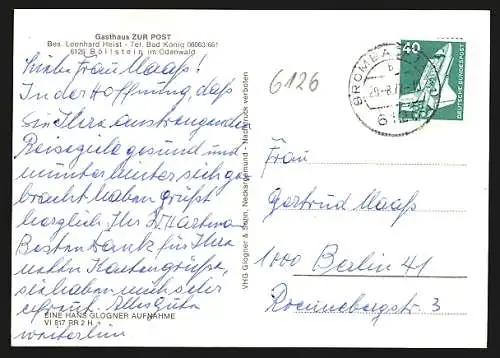 Gasthaus ZUR POST
Bes. Leonhard Heist - Tel. Bad König 06063/651
6126 Böllstein im Odenwald
Liebe Frau Maaß!
In der Hoffnung, daß
Sie Ihre anstrengenden
Reiseziele gesund und
munter hinter sich ge-
bracht haben grüßt
herzlich Ihr Hartman
Besten Dank für Ihre
netten Kartengrüße,
sie haben mich sehr
erfreut. Alles Gute
weiterhin
EINE HANS GLOGNER AUFNAHME
VI 817 RR 2 H
VHG Glogner & Sohn, Neckargemünd - Nachdruck verboten
6126
BROMBACH
b
40
DEUTSCHE BUNDESPOST
Frau
Gertrud Maaß
1000 Berlin 41
Rönnebergstr. 3